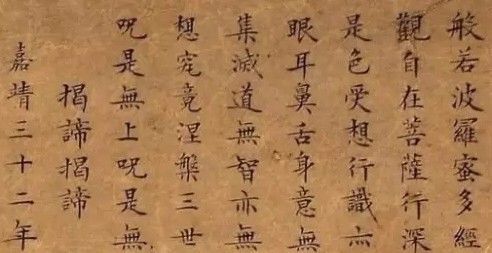 般若波羅蜜多經
觀自在菩薩行深
是色受想行識亦
眼耳鼻舌身意無
集滅道無智亦無
想究竟涅槃三世
呪是無上呪是無
揭諦揭諦
嘉靖三十二年